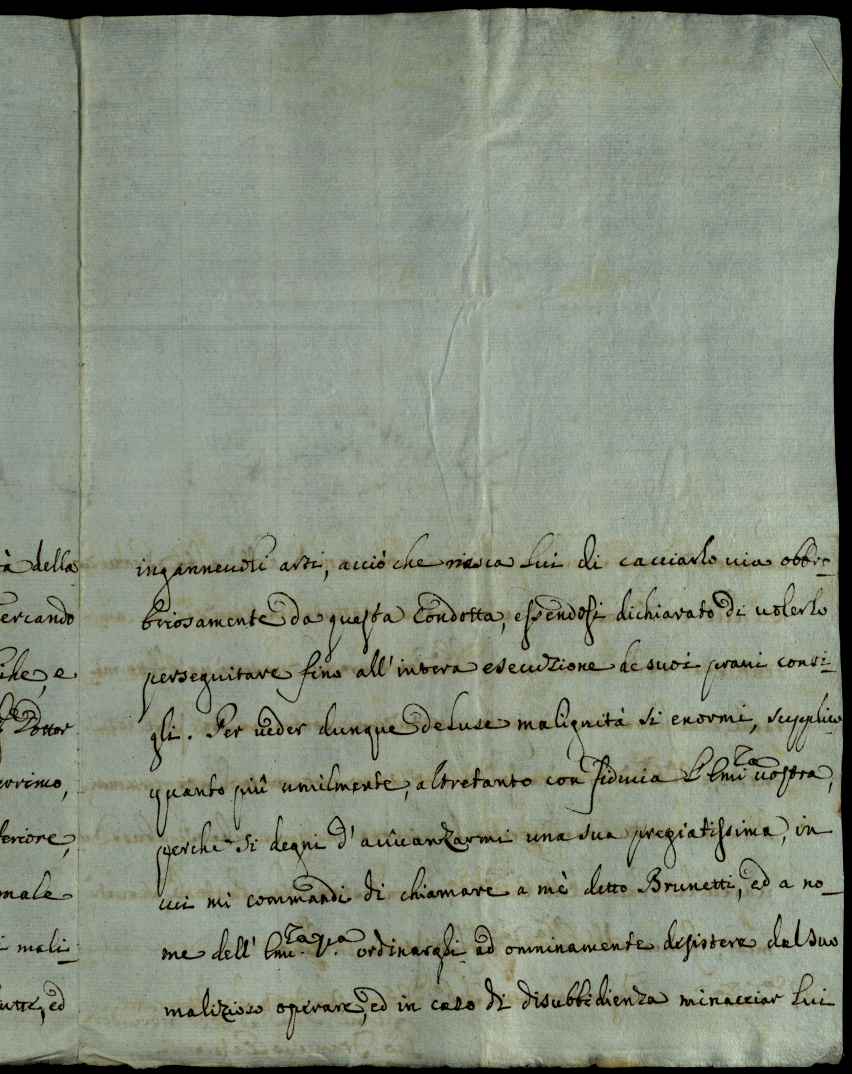 à della
ercando
iche, e
Dottor
orrimo,
feriore,
male
i mali_
utte, ed
ingannevoli arti, acciò che riesca lui di cacciarlo via obbro_
briosamente da questa Condotta, essendosi dichiarato di volerlo
perseguitare fino all'intera esecuzione de suoi pravi consi_
gli. Per veder dunque deluse malignità si enormi, supplico
quanto più umilmente, altretanto con fiducia l'Emi.za vostra,
perche si degni d'avvanzarmi una sua pregiatissima, in
cui mi commandi di chiamare a mè detto Brunetti, ed a no_
me dell'Emi.za v.ra ordinargli ad omninamente desistere dal suo
malizioso operare, ed in caso di disubbidienza minacciar lui